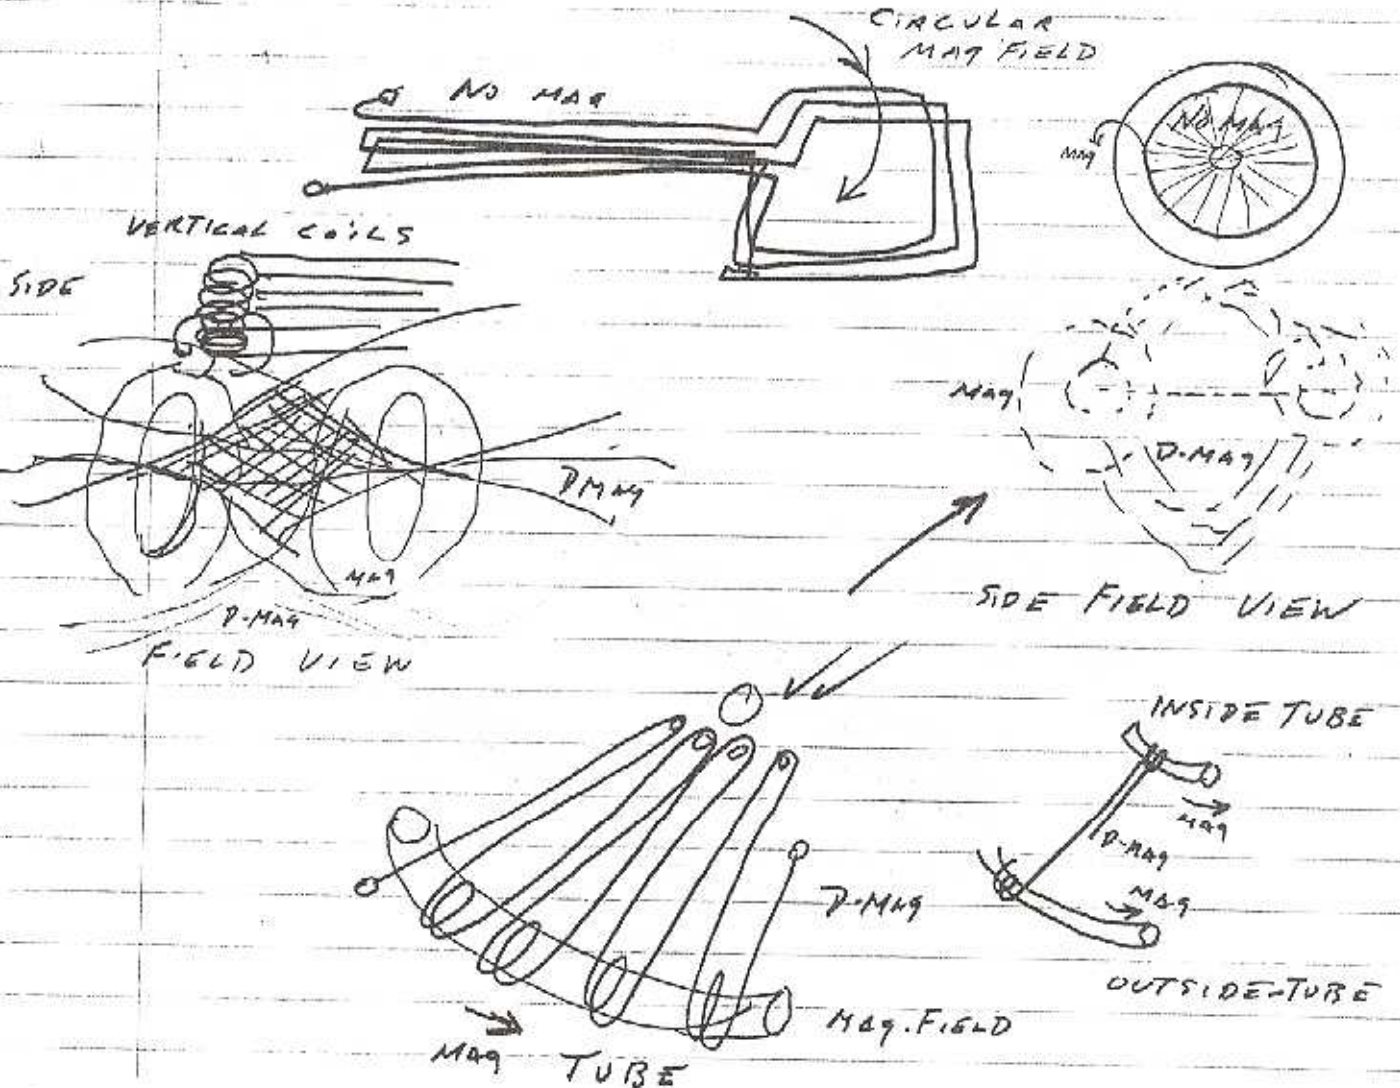 CIRCULAR
MAG FIELD
NO MAG
NO MAG
MAG
VERTICAL COILS
SIDE
MAG
D-MAG
DMAG
MAG
D-MAG
SIDE FIELD VIEW
FIELD VIEW
INSIDE TUBE
MAG
D-MAG
MAG
D-MAG
OUTSIDE-TUBE
MAG. FIELD
MAG TUBE